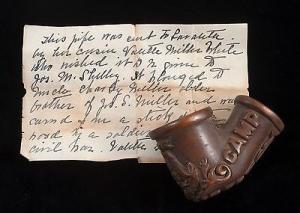 This pipe was sent to Lavalette
by her cousin Valette Miller White
who wished it to be given to
Jos. M. Shelley. It belonged to
Uncle Charley Miller older
brother of J. S. Miller and was
carved from a
by a soldier
civil war. Valette
CAMP